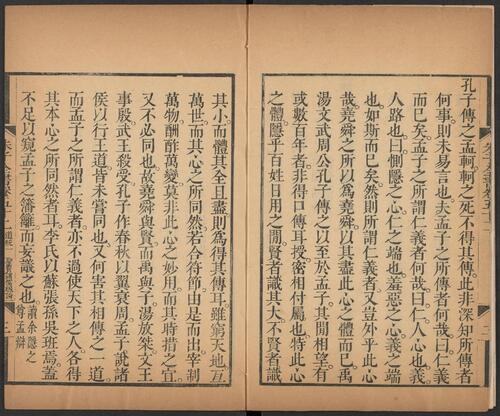 孔子傳之孟軻軻之死不得其傳此非深知所傳者
何事則未易言也夫孟子之所傳者何哉曰仁義
而巳矣孟子之所謂仁義者何哉曰仁人心也義
人路也曰惻隱之心仁之端也羞惡之心義之端
也如斯而巳矣然則所謂仁義者又豈外乎此心
哉堯舜之所以為堯舜以其盡此心之體而巳禹
湯文武周公孔子傳之以至於孟子其間相望有
或數百年者非得口傳耳授密相付屬也特此心
之體隱乎百姓日用之間賢者識其大不賢者識
其小而體其全且盡則為得其傳耳雖窮天地亙
萬世而其心之所同然若合符節由是而出宰制
萬物酬酢萬變莫非此心之妙用而其時措之宜
又不必同也故堯舜與賢而禹與子湯放桀文王
事殷武王殺受孔子作春秋以翼衰周孟子說諸
侯以行王道皆未嘗同也又何害其相傳之一道
而孟子之所謂仁義者亦不過使天下之人各得
其本心之所同然者耳李氏以蘇張孫吳班焉蓋
不足以窺孟子之籓籬而妄議之也
讀余隱之
尊孟辯
二
三